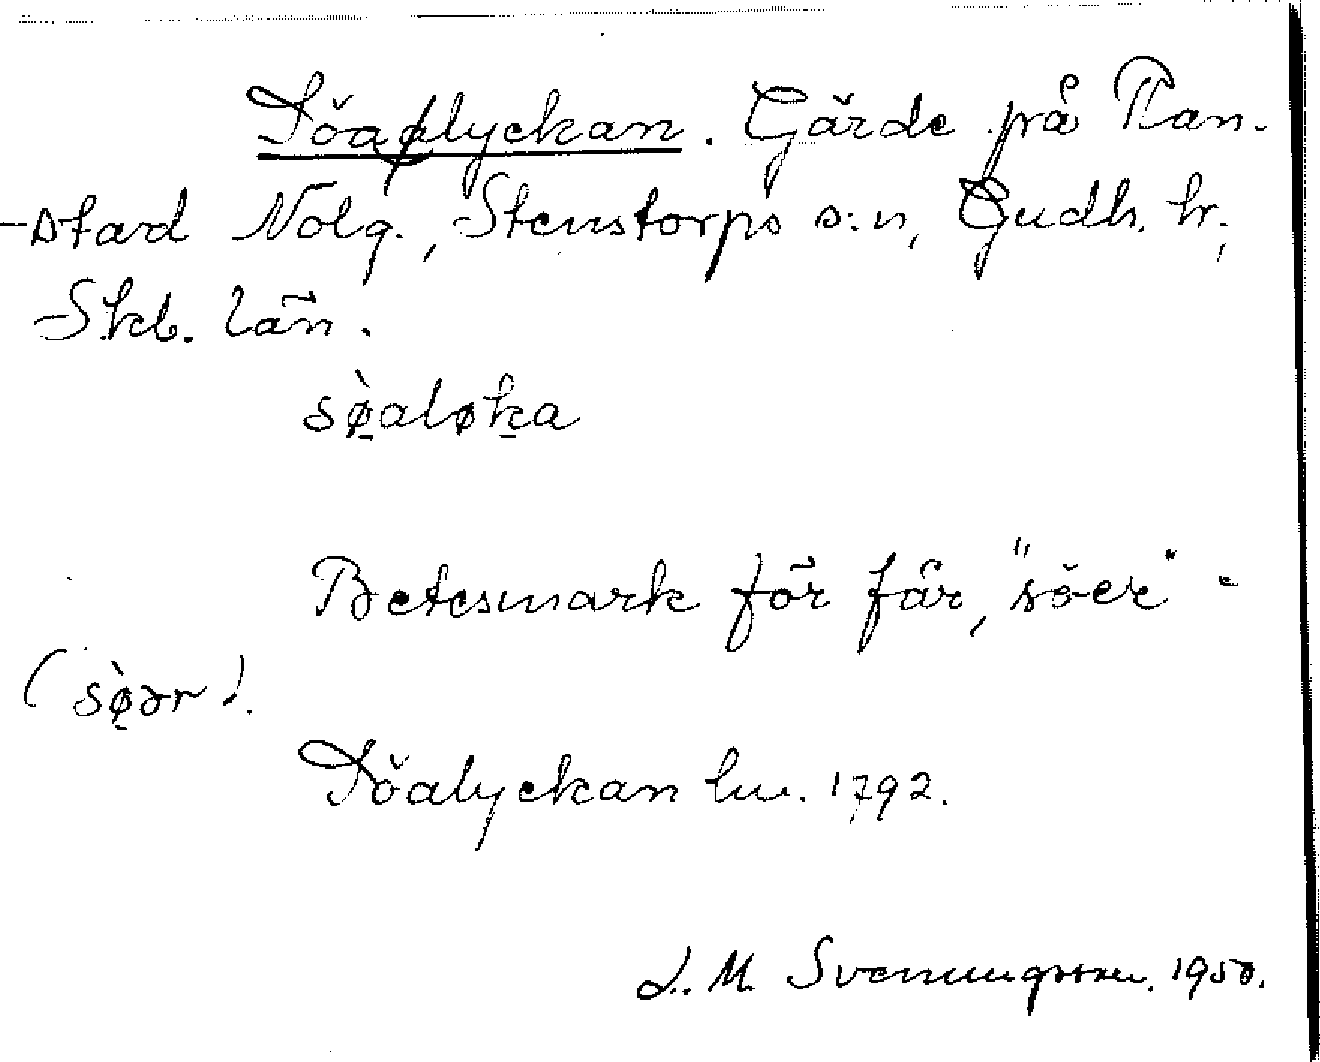 Söaplyckan. Gärde på Ran-
stad Nolg., Stenstorps s:n, Gudh. hr.,
Skb. län.
sø̱̀aløḵa
Betesmark för får, "söer" -
(sø̱̀ər).
Söalyckan lm. 1792.
L. M. Svenungsson. 1950.